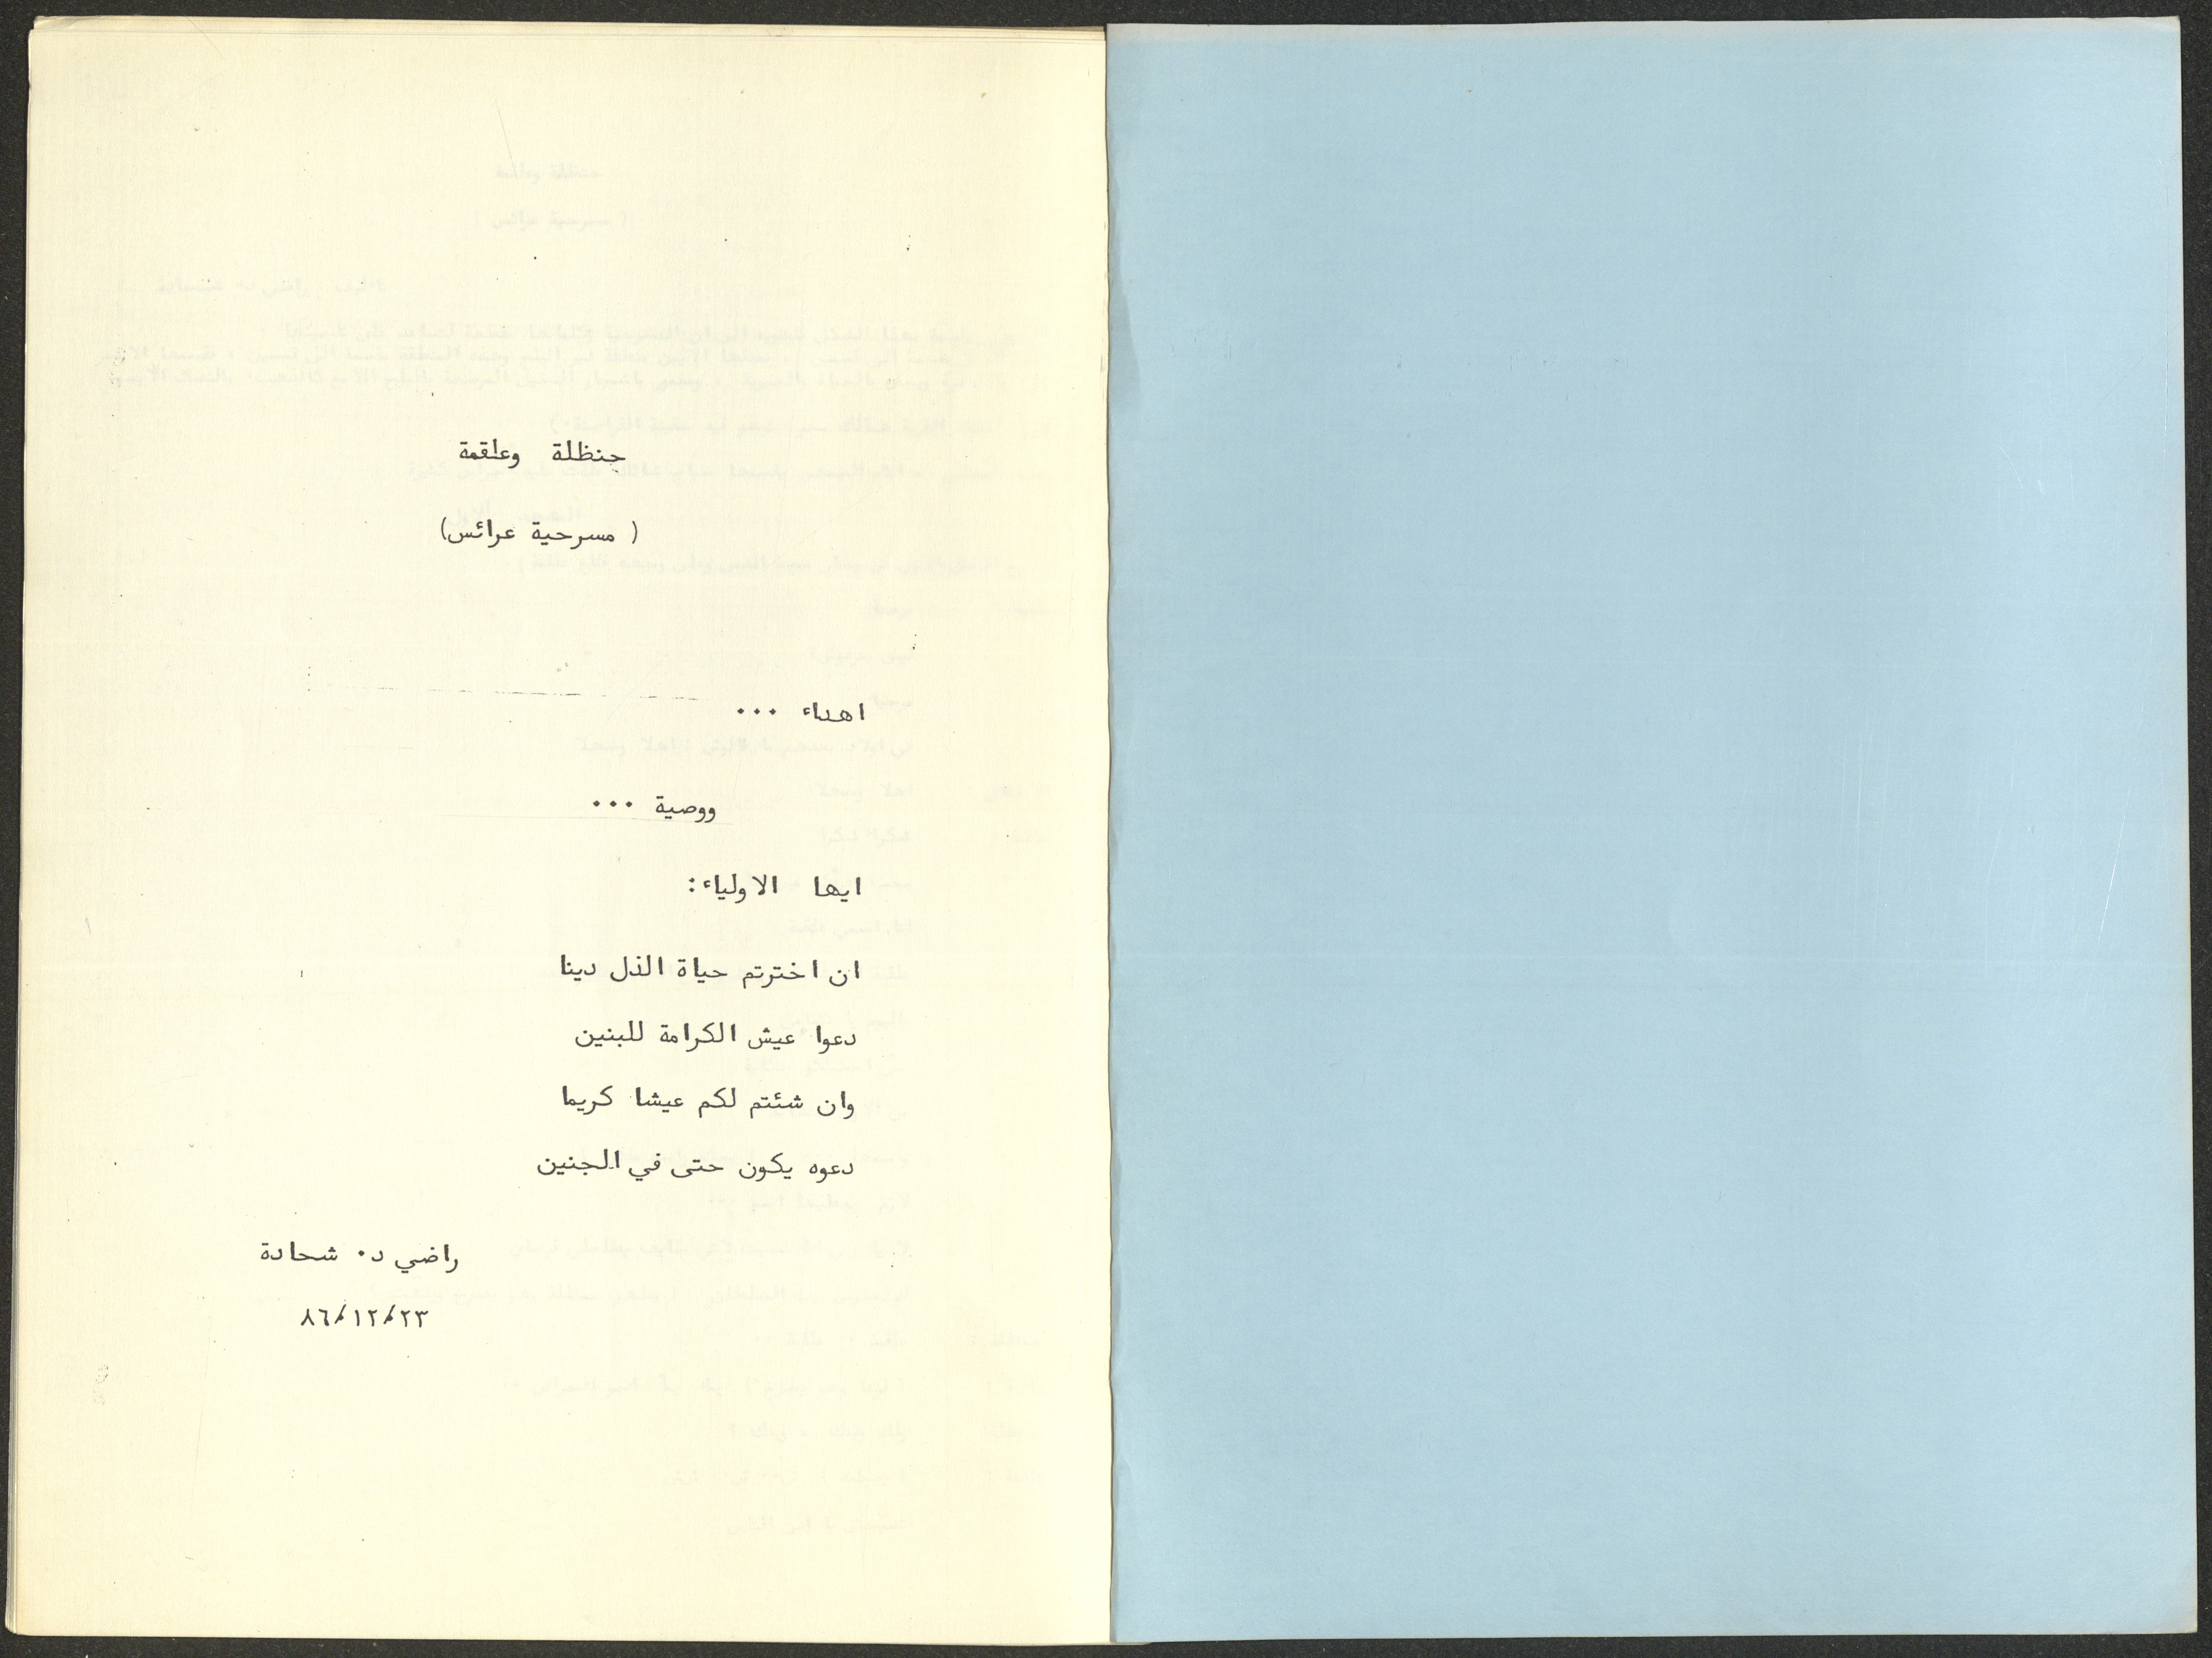 حنظلة وعلقمة
( مسرحية عرائس)
اهداء ...
ووصية ...
ايها الاولياء:
ان اخترتم حياة الذل دينا
دعوا عيش الكرامة للبنين
وان شئتم لكم عيشا كريما
دعوه يكون حتى في الجنين
راضي د. شحادة
٨٦/١٢/٢٣